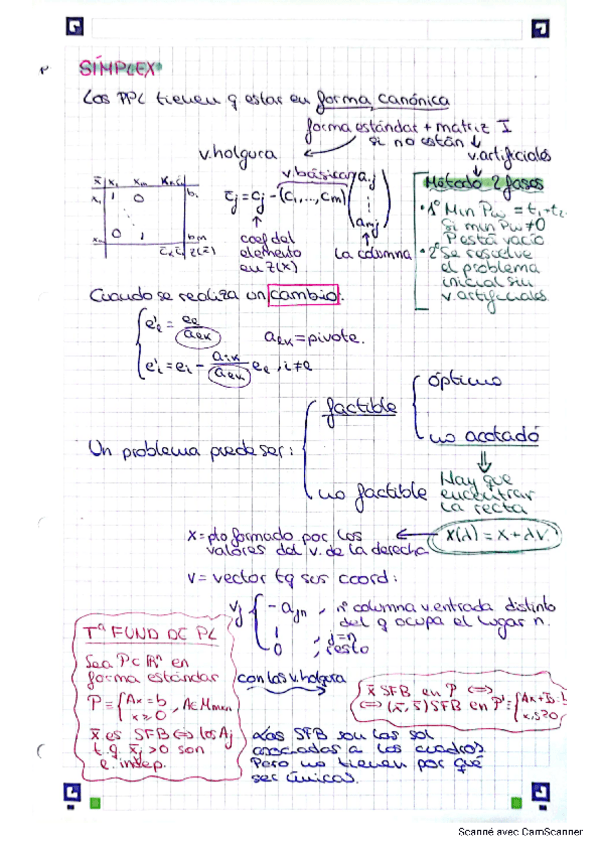 SÍMPLEX
Los PPL tienen q estar en forma canónica
forma estándar + matriz I
si no están
v.holgura
v.artificiales
x̄ x₁ xₘ xₘ₊₁
x₁ 1 0 b₁
0 1
xₘ bₘ
z(x̄)
v.básicas
c̄j = cj - (c₁,...,cₘ) (a₁j ⋮ aₘj)
coef del
elemento
en z(x)
la columna
Método 2 fases
• 1º Min Pw = t₁+t₂
Si min Pw ≠ 0
P está vacío
• 2º Se resuelve
el problema
inicial sin
v.artificiales
Cuando se realiza un cambio:
e'ℓ = eℓ / aℓk
aℓk = pivote.
e'i = ei - aik / aℓk eℓ , i≠ℓ
Un problema puede ser:
factible
óptimo
no acotado
no factible
Hay que
encontrar
la recta
x(λ) = x + λv
x = pto formado por los
valores del v. de la derecha
v = vector tq sus coord:
vj
- ajn , nº columna v.entrada distinto
del q ocupa el lugar n.
1 , j=n
0 , resto
Tª FUND DE PL
Sea P⊂ℝⁿ en
forma estándar
P = {Ax = b
x ≥ 0 , A∈Mmxn
x̄ es SFB ⇔ los Aj
t.q x̄j > 0 son
l. indep.
con las v.holgura
x̄ SFB en P ⇔
⇔ (x̄, s̄) SFB en P' =
x,s≥0
Las SFB son las sol
asociadas a los cuadros
Pero no tienen por qué
ser únicas.
Scanné avec CamScanner